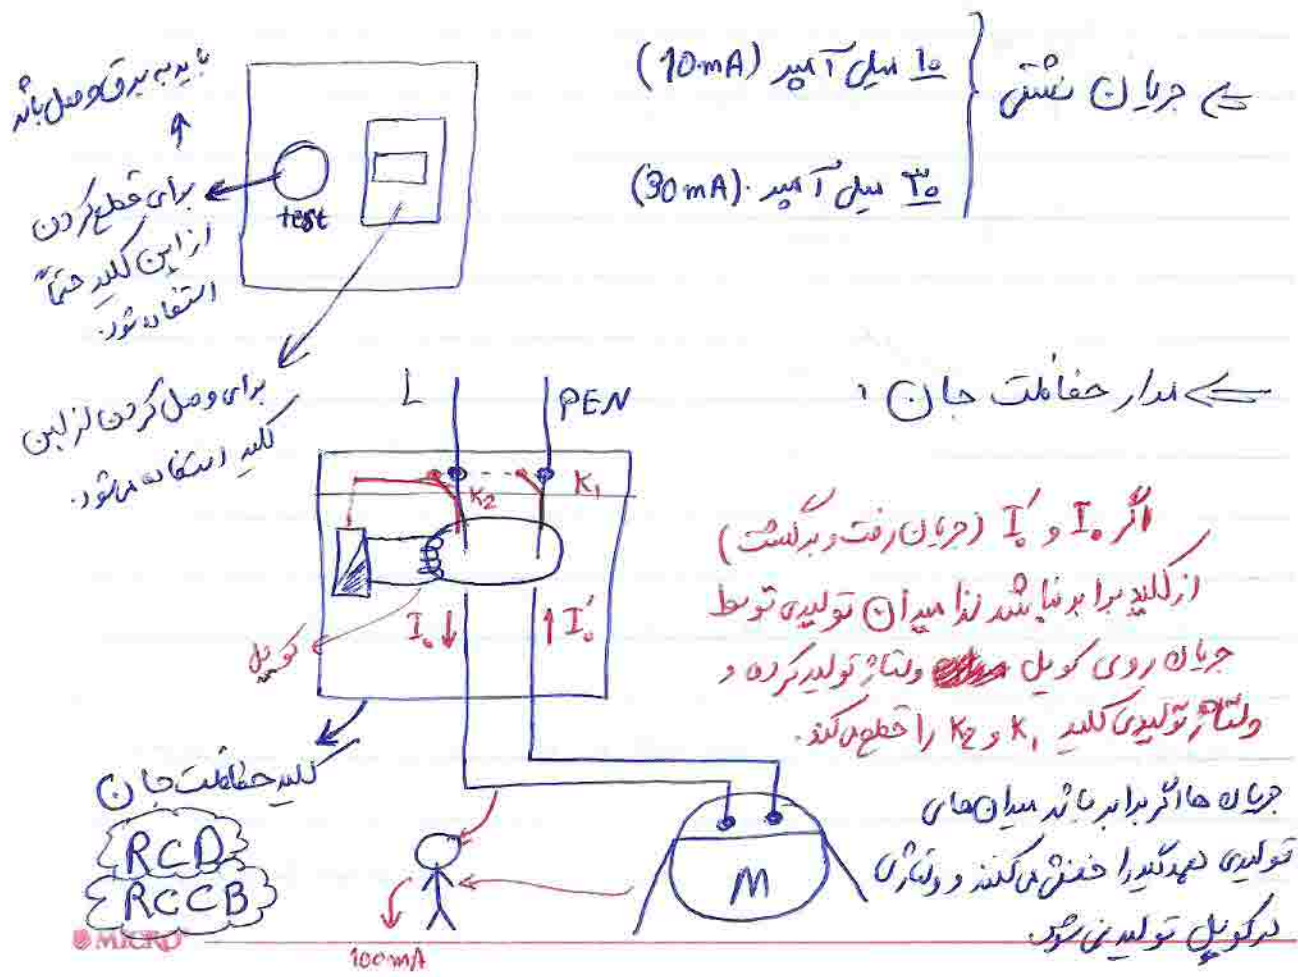 ⇐ جریان نشتی
۱۰ میلی آمپر (10mA)
۳۰ میلی آمپر. (30mA)
باید به برق وصل باشد
برای قطع کردن
از این کلید حتماً
استفاده شود.
test
برای وصل کردن از این
کلید استفاده می‌شود.
⇐ مدار حفاظت جان :
L
PEN
K₂
K₁
I₀ ↓
↑ I₀′
کوپل
کلید حفاظت جان
RCD
RCCB
اگر I₀ و I₀′ (جریان رفت و برگشت)
از کلید برابر نباشد لذا میدان تولیدی توسط
جریان روی کوپل ولتاژ تولید کرده و
ولتاژ تولیدی کلید K₁ و K₂ را قطع می‌کند.
جریان ها اگر برابر باشد میدان های
تولیدی همدیگر را خنثی می‌کنند و ولتاژی
در کوپل تولید نمی شود.
M
100mA
MICRO